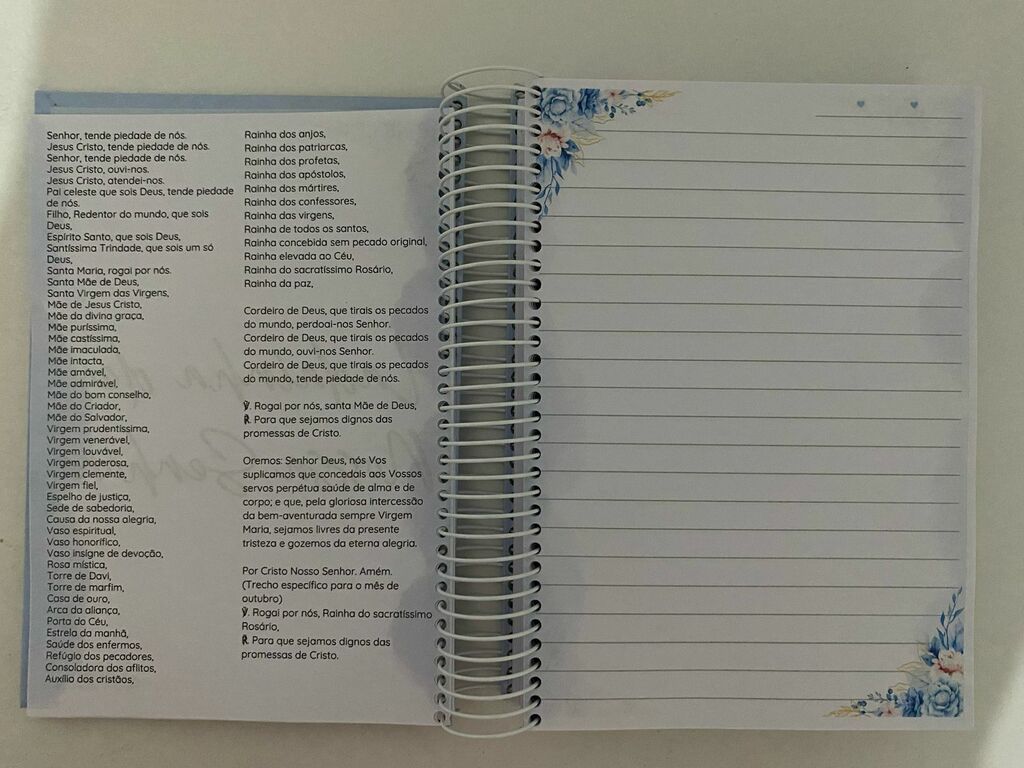 Senhor, tende piedade de nós.
Jesus Cristo, tende piedade de nós.
Senhor, tende piedade de nós.
Jesus Cristo, ouvi-nos.
Jesus Cristo, atendei-nos.
Pai celeste que sois Deus, tende piedade
de nós.
Filho, Redentor do mundo, que sois
Deus,
Espírito Santo, que sois Deus,
Santíssima Trindade, que sois um só
Deus,
Santa Maria, rogai por nós.
Santa Mãe de Deus,
Santa Virgem das Virgens,
Mãe de Jesus Cristo,
Mãe da divina graça,
Mãe puríssima,
Mãe castíssima,
Mãe imaculada,
Mãe intacta,
Mãe amável,
Mãe admirável,
Mãe do bom conselho,
Mãe do Criador,
Mãe do Salvador,
Virgem prudentíssima,
Virgem venerável,
Virgem louvável,
Virgem poderosa,
Virgem clemente,
Virgem fiel,
Espelho de justiça,
Sede de sabedoria,
Causa da nossa alegria,
Vaso espiritual,
Vaso honorífico,
Vaso insigne de devoção,
Rosa mística,
Torre de Davi,
Torre de marfim,
Casa de ouro,
Arca da aliança,
Porta do Céu,
Estrela da manhã,
Saúde dos enfermos,
Refúgio dos pecadores,
Consoladora dos aflitos,
Auxílio dos cristãos,
Rainha dos anjos,
Rainha dos patriarcas,
Rainha dos profetas,
Rainha dos apóstolos,
Rainha dos mártires,
Rainha dos confessores,
Rainha das virgens,
Rainha de todos os santos,
Rainha concebida sem pecado original,
Rainha elevada ao Céu,
Rainha do sacratíssimo Rosário,
Rainha da paz,
Cordeiro de Deus, que tirais os pecados
do mundo, perdoai-nos Senhor.
Cordeiro de Deus, que tirais os pecados
do mundo, ouvi-nos Senhor.
Cordeiro de Deus, que tirais os pecados
do mundo, tende piedade de nós.
℣. Rogai por nós, santa Mãe de Deus,
℟. Para que sejamos dignos das
promessas de Cristo.
Oremos: Senhor Deus, nós Vos
suplicamos que concedais aos Vossos
servos perpétua saúde de alma e de
corpo; e que, pela gloriosa intercessão
da bem-aventurada sempre Virgem
Maria, sejamos livres da presente
tristeza e gozemos da eterna alegria.
Por Cristo Nosso Senhor. Amém.
(Trecho específico para o mês de
outubro)
℣. Rogai por nós, Rainha do sacratíssimo
Rosário,
℟. Para que sejamos dignos das
promessas de Cristo.